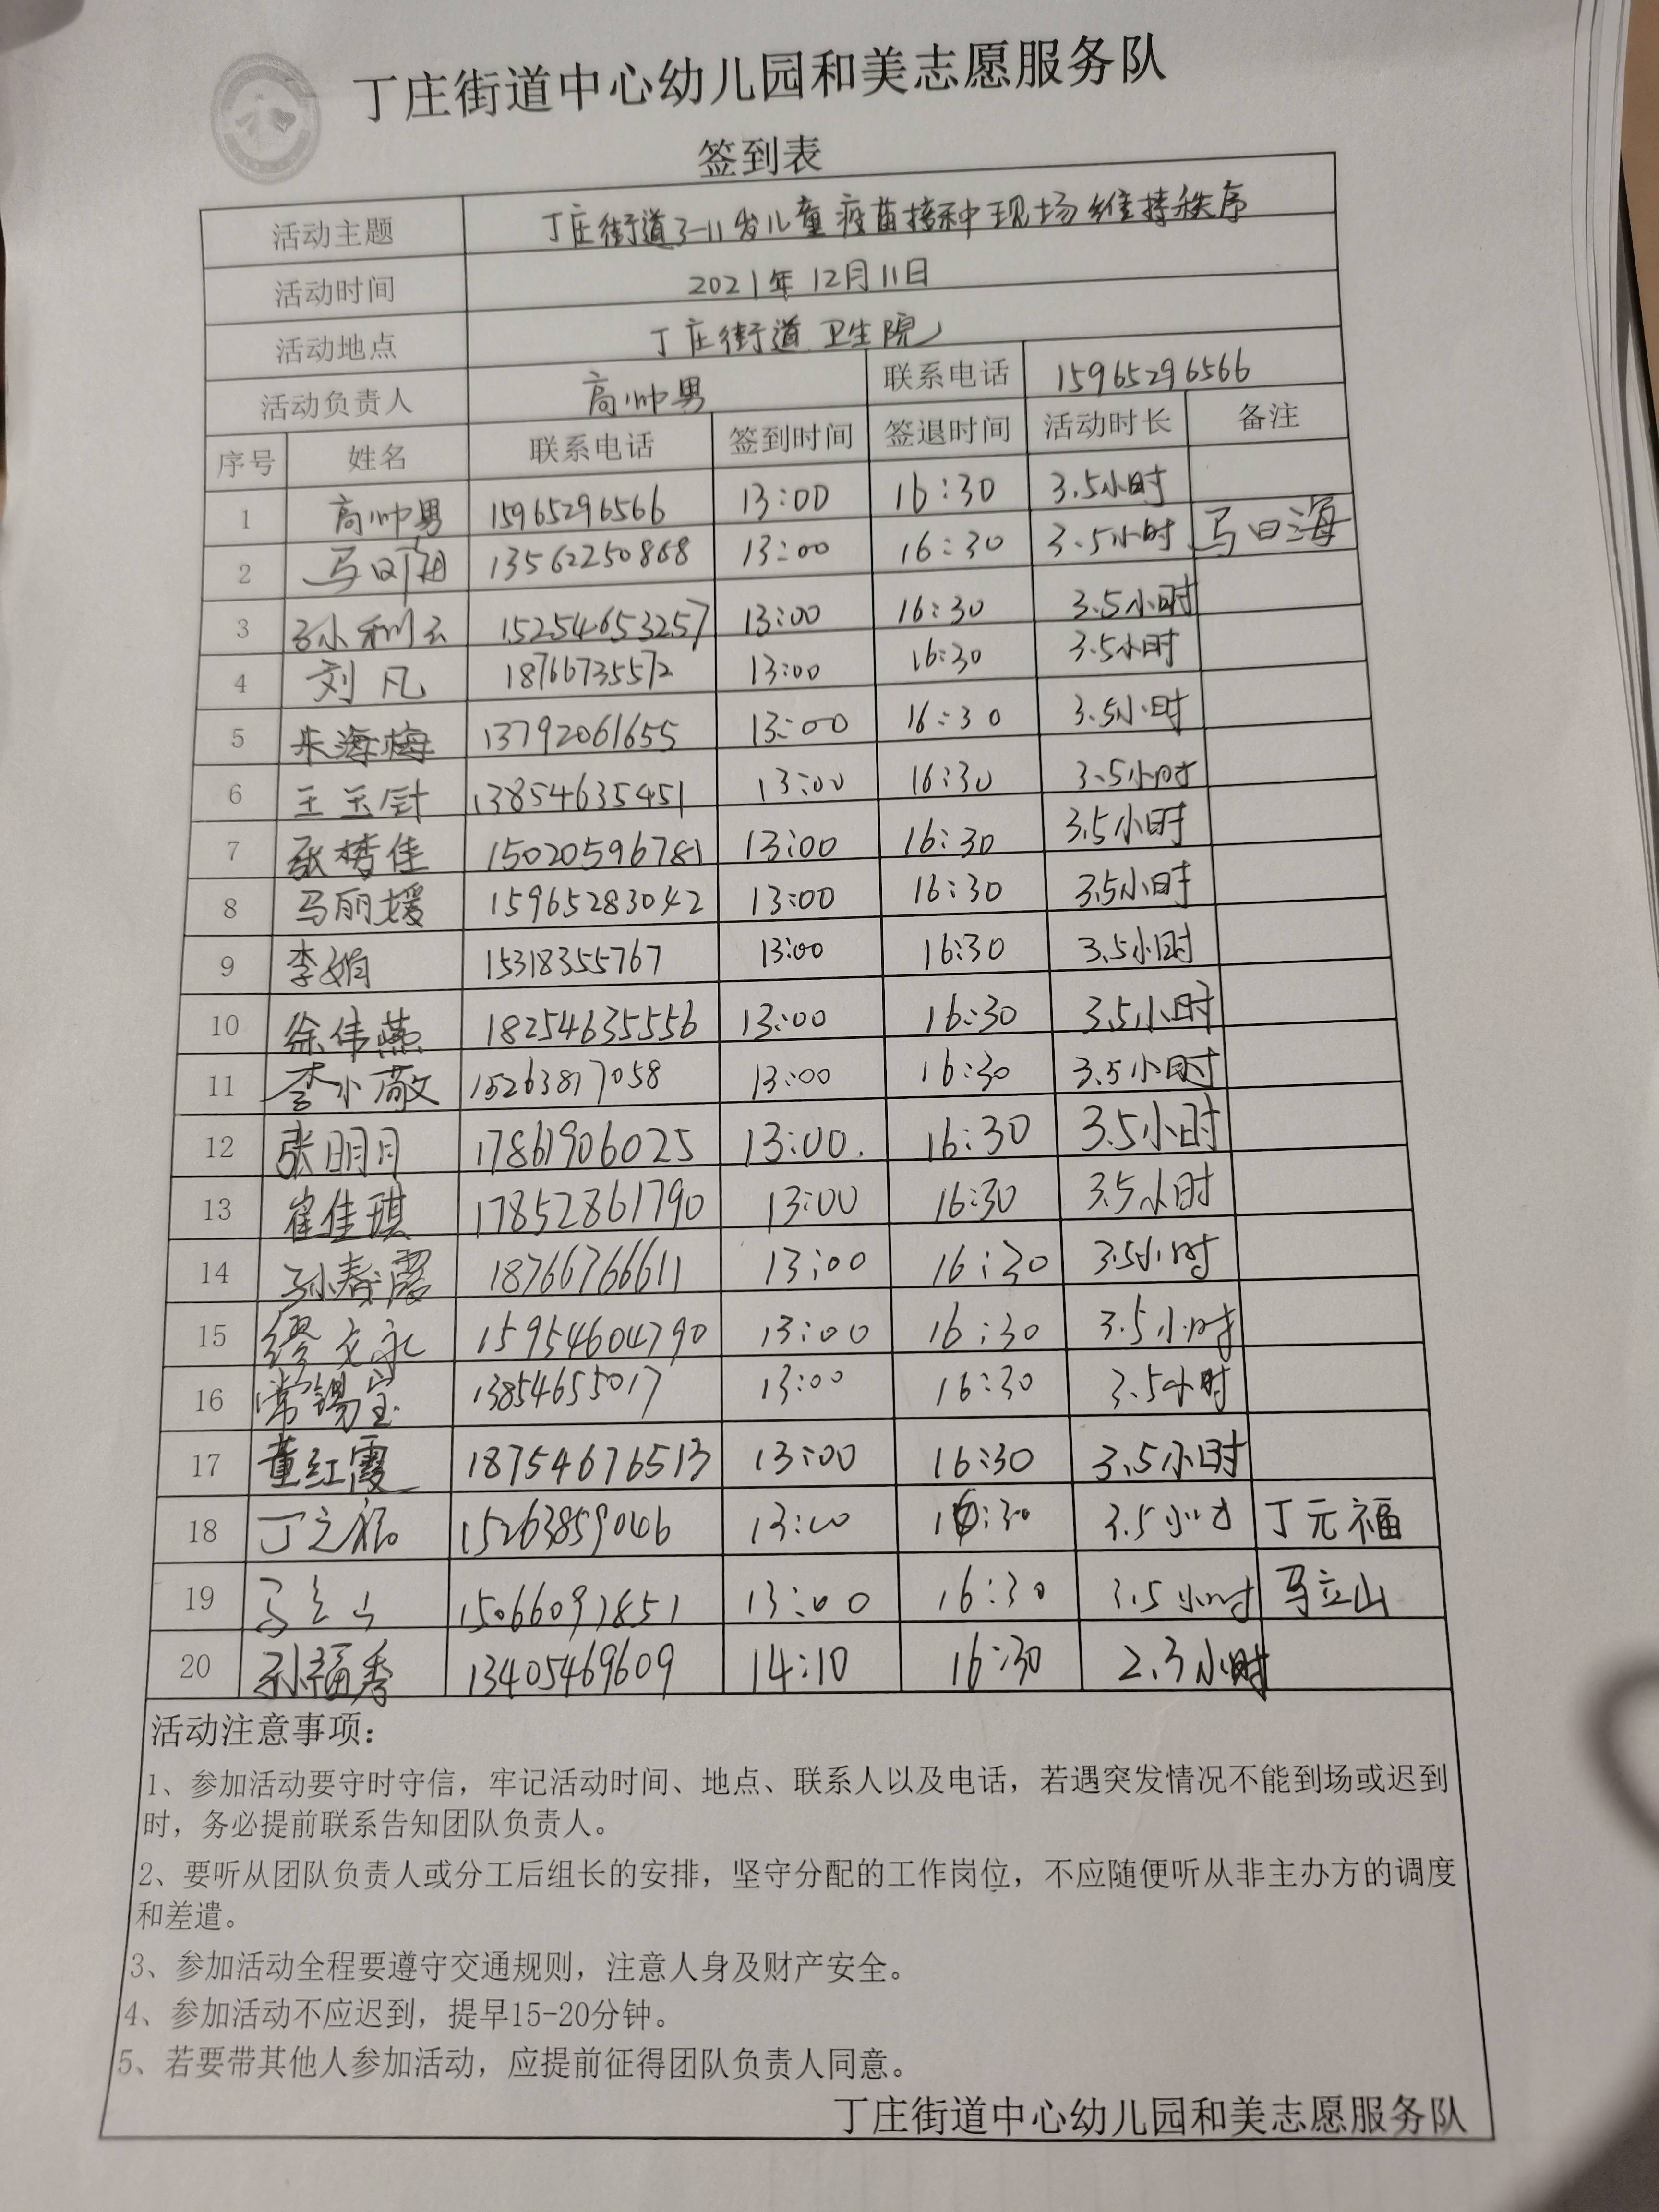 丁庄街道中心幼儿园和美志愿服务队
签到表
活动主题 丁庄街道3-11岁儿童疫苗接种现场维持秩序
活动时间 2021年12月11日
活动地点 丁庄街道卫生院
活动负责人 高帅男 联系电话 15965296566
序号 姓名 联系电话 签到时间 签退时间 活动时长 备注
1 高帅男 15965296566 13:00 16:30 3.5小时
2 13562250868 13:00 16:30 3.5小时 马日海
3 孙利云 15254653257 13:00 16:30 3.5小时
4 刘凡 18766735572 13:00 16:30 3.5小时
5 朱海梅 13792061655 13:00 16:30 3.5小时
6 王玉针 13854635451 13:00 16:30 3.5小时
7 张梦佳 15020596781 13:00 16:30 3.5小时
8 马丽媛 15965283042 13:00 16:30 3.5小时
9 李娟 15318355767 13:00 16:30 3.5小时
10 徐伟燕 18254635556 13:00 16:30 3.5小时
11 李小敬 15263817058 13:00 16:30 3.5小时
12 张明月 17861906025 13:00. 16:30 3.5小时
13 崔佳琪 17852861790 13:00 16:30 3.5小时
14 孙春霞 18766766611 13:00 16:30 3.5小时
15 缪文永 15954604790 13:00 16:30 3.5小时
16 常锡宝 13854655017 13:00 16:30 3.5小时
17 董红霞 18754676513 13:00 16:30 3.5小时
18 丁元福 15263859046 13:00 16:30 3.5小时 丁元福
19 马立山 15066091851 13:00 16:30 3.5小时 马立山
20 孙福香 13405469609 14:10 16:30 2.3小时
活动注意事项：
1、参加活动要守时守信，牢记活动时间、地点、联系人以及电话，若遇突发情况不能到场或迟到
时，务必提前联系告知团队负责人。
2、要听从团队负责人或分工后组长的安排，坚守分配的工作岗位，不应随便听从非主办方的调度
和差遣。
3、参加活动全程要遵守交通规则，注意人身及财产安全。
4、参加活动不应迟到，提早15-20分钟。
5、若要带其他人参加活动，应提前征得团队负责人同意。
丁庄街道中心幼儿园和美志愿服务队